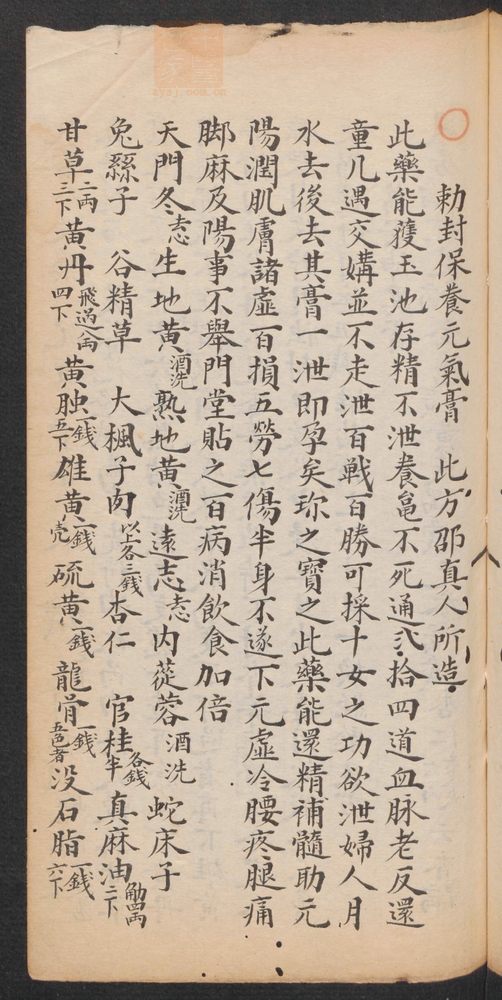 勅封保養元氣膏 此方邵真人所造
此藥能護玉池存精不泄養龜不死通弍拾四道血脉老反還
童凢遇交媾並不走泄百戰百勝可採十女之功欲泄婦人月
水去後去其膏一泄即孕矣珎之寳之此藥能還精補髓助元
陽潤肌膚諸虛百損五勞七傷半身不遂下元虛冷腰疼腿痛
脚麻及陽事不舉門堂貼之百病消飲食加倍
天門冬去心 生地黄酒洗 熟地黄酒洗 遠志去心 肉蓯蓉酒洗 蛇床子
兔絲子 谷精草 大楓子肉以上各三錢 杏仁 官桂各錢半 真麻油觔四兩二下
甘草二兩三下 黄丹飛過八兩四下 黄蝕一錢五下 雄黄一錢 硫黄一錢 龍骨一錢五色者 没石脂一錢六下